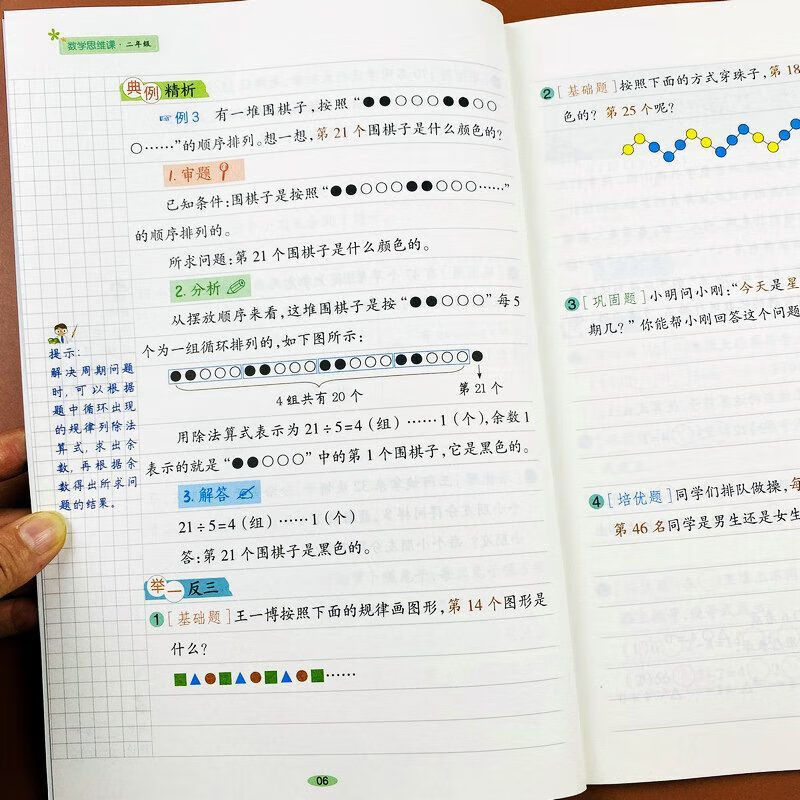 数学思维课·二年级
典例精析
例3 有一堆围棋子,按照“●●○○○●●○○
○……”的顺序排列。想一想,第21个围棋子是什么颜色的?
1.审题
已知条件:围棋子是按照“●●○○○●●○○○……”
的顺序排列的。
所求问题:第21个围棋子是什么颜色的。
2.分析
从摆放顺序来看,这堆围棋子是按“●●○○○”每5
个为一组循环排列的,如下图所示:
4组共有20个
第21个
用除法算式表示为21÷5=4(组)……1(个),余数1
表示的就是“●●○○○”中的第1个围棋子,它是黑色的。
3.解答
21÷5=4(组)……1(个)
答:第21个围棋子是黑色的。
提示:
解决周期问题
时,可以根据
题中循环出现
的规律列除法
算式,求出余
数,再根据余
数得出所求问
题的结果。
举一反三
1 [基础题]王一博按照下面的规律画图形,第14个图形是
什么?
■▲●■▲●■▲●■……
06
2 [基础题]按照下面的方式穿珠子,第18
色的?第25个呢?
3 [巩固题]小明问小刚:“今天是星
期几?”你能帮小刚回答这个问题
4 [培优题]同学们排队做操,每
第46名同学是男生还是女生